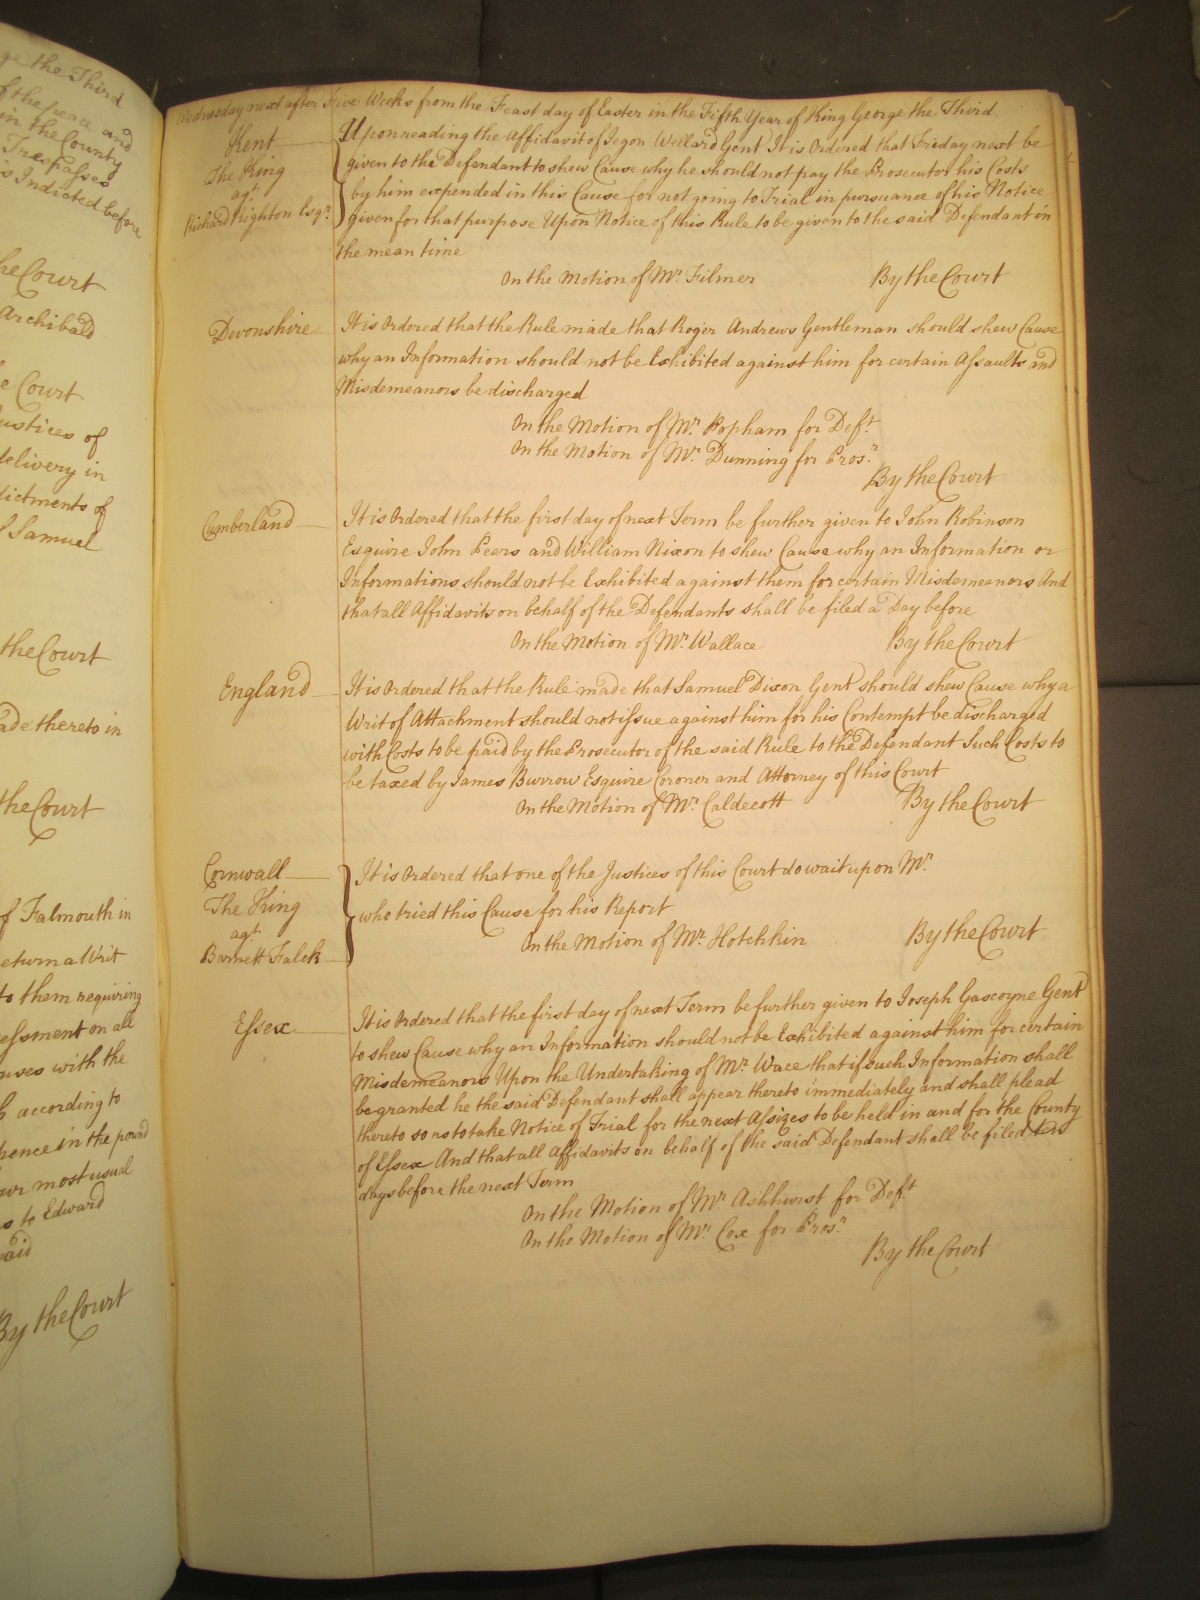 ge the Third
of the peace and
in the County
Trespasses
is Indicted before
he Court
Archibald
e Court
ustices of
delivery in
dictments of
Samuel
the Court
ade thereto in
the Court
of Falmouth in
eturn a Writ
to them requiring
essment on all
uses with the
h according to
pence in the pound
our most usual
as to Edward
said
By the Court
Wednesday next after Five Weeks from the Feast day of Easter in the Fifth Year of King George the Third.
Kent
The King
agt
Richard Kighton Esqr.
Upon reading the Affidavit of Jegon Wellard Gent It is Ordered that Friday next be
given to the Defendant to shew Cause why he should not pay the Prosecutor his Costs
by him expended in this Cause for not going to Trial in pursuance of his Notice
given for that purpose Upon Notice of this Rule to be given to the said Defendant in
the mean time
On the Motion of Mr. Filmer By the Court
Devonshire
It is Ordered that the Rule made that Roger Andrews Gentleman should shew Cause
why an Information should not be Exhibited against him for certain Assaults and
Misdemeanors be discharged
On the Motion of Mr. Popham for Deft.
On the Motion of Mr. Dunning for Pros.r
By the Court
Cumberland
It is Ordered that the first day of next Term be further given to John Robinson
Esquire John Peers and William Nixon to shew Cause why an Information or
Informations should not be Exhibited against them for certain Misdemeanors And
that all Affidavits on behalf of the Defendants shall be filed a Day before
On the Motion of Mr. Wallace By the Court
England
It is Ordered that the Rule made that Samuel Dixon Gent should shew Cause why a
Writ of Attachment should not issue against him for his Contempt be discharged
with Costs to be paid by the Prosecutor of the said Rule to the Defendant Such Costs to
be taxed by James Burrow Esquire Coroner and Attorney of this Court
On the Motion of Mr. Caldecott By the Court
Cornwall
The King
agt
Barnett Falck
It is Ordered that one of the Justices of this Court do wait upon Mr.
who tried this Cause for his Report
On the Motion of Mr. Hotchkin By the Court
Essex
It is Ordered that the first day of next Term be further given to Joseph Gascoyne Gent
to shew Cause why an Information should not be Exhibited against him for certain
Misdemeanors Upon the Undertaking of Mr. Wace that if such Information shall
be granted he the said Defendant shall appear thereto immediately and shall plead
thereto so as to take Notice of Trial for the next Assizes to be held in and for the County
of Essex And that all Affidavits on behalf of the said Defendant shall be filed ten
days before the next Term
On the Motion of Mr. Ashhurst for Deft.
On the Motion of Mr. Cox for Pros.r
By the Court